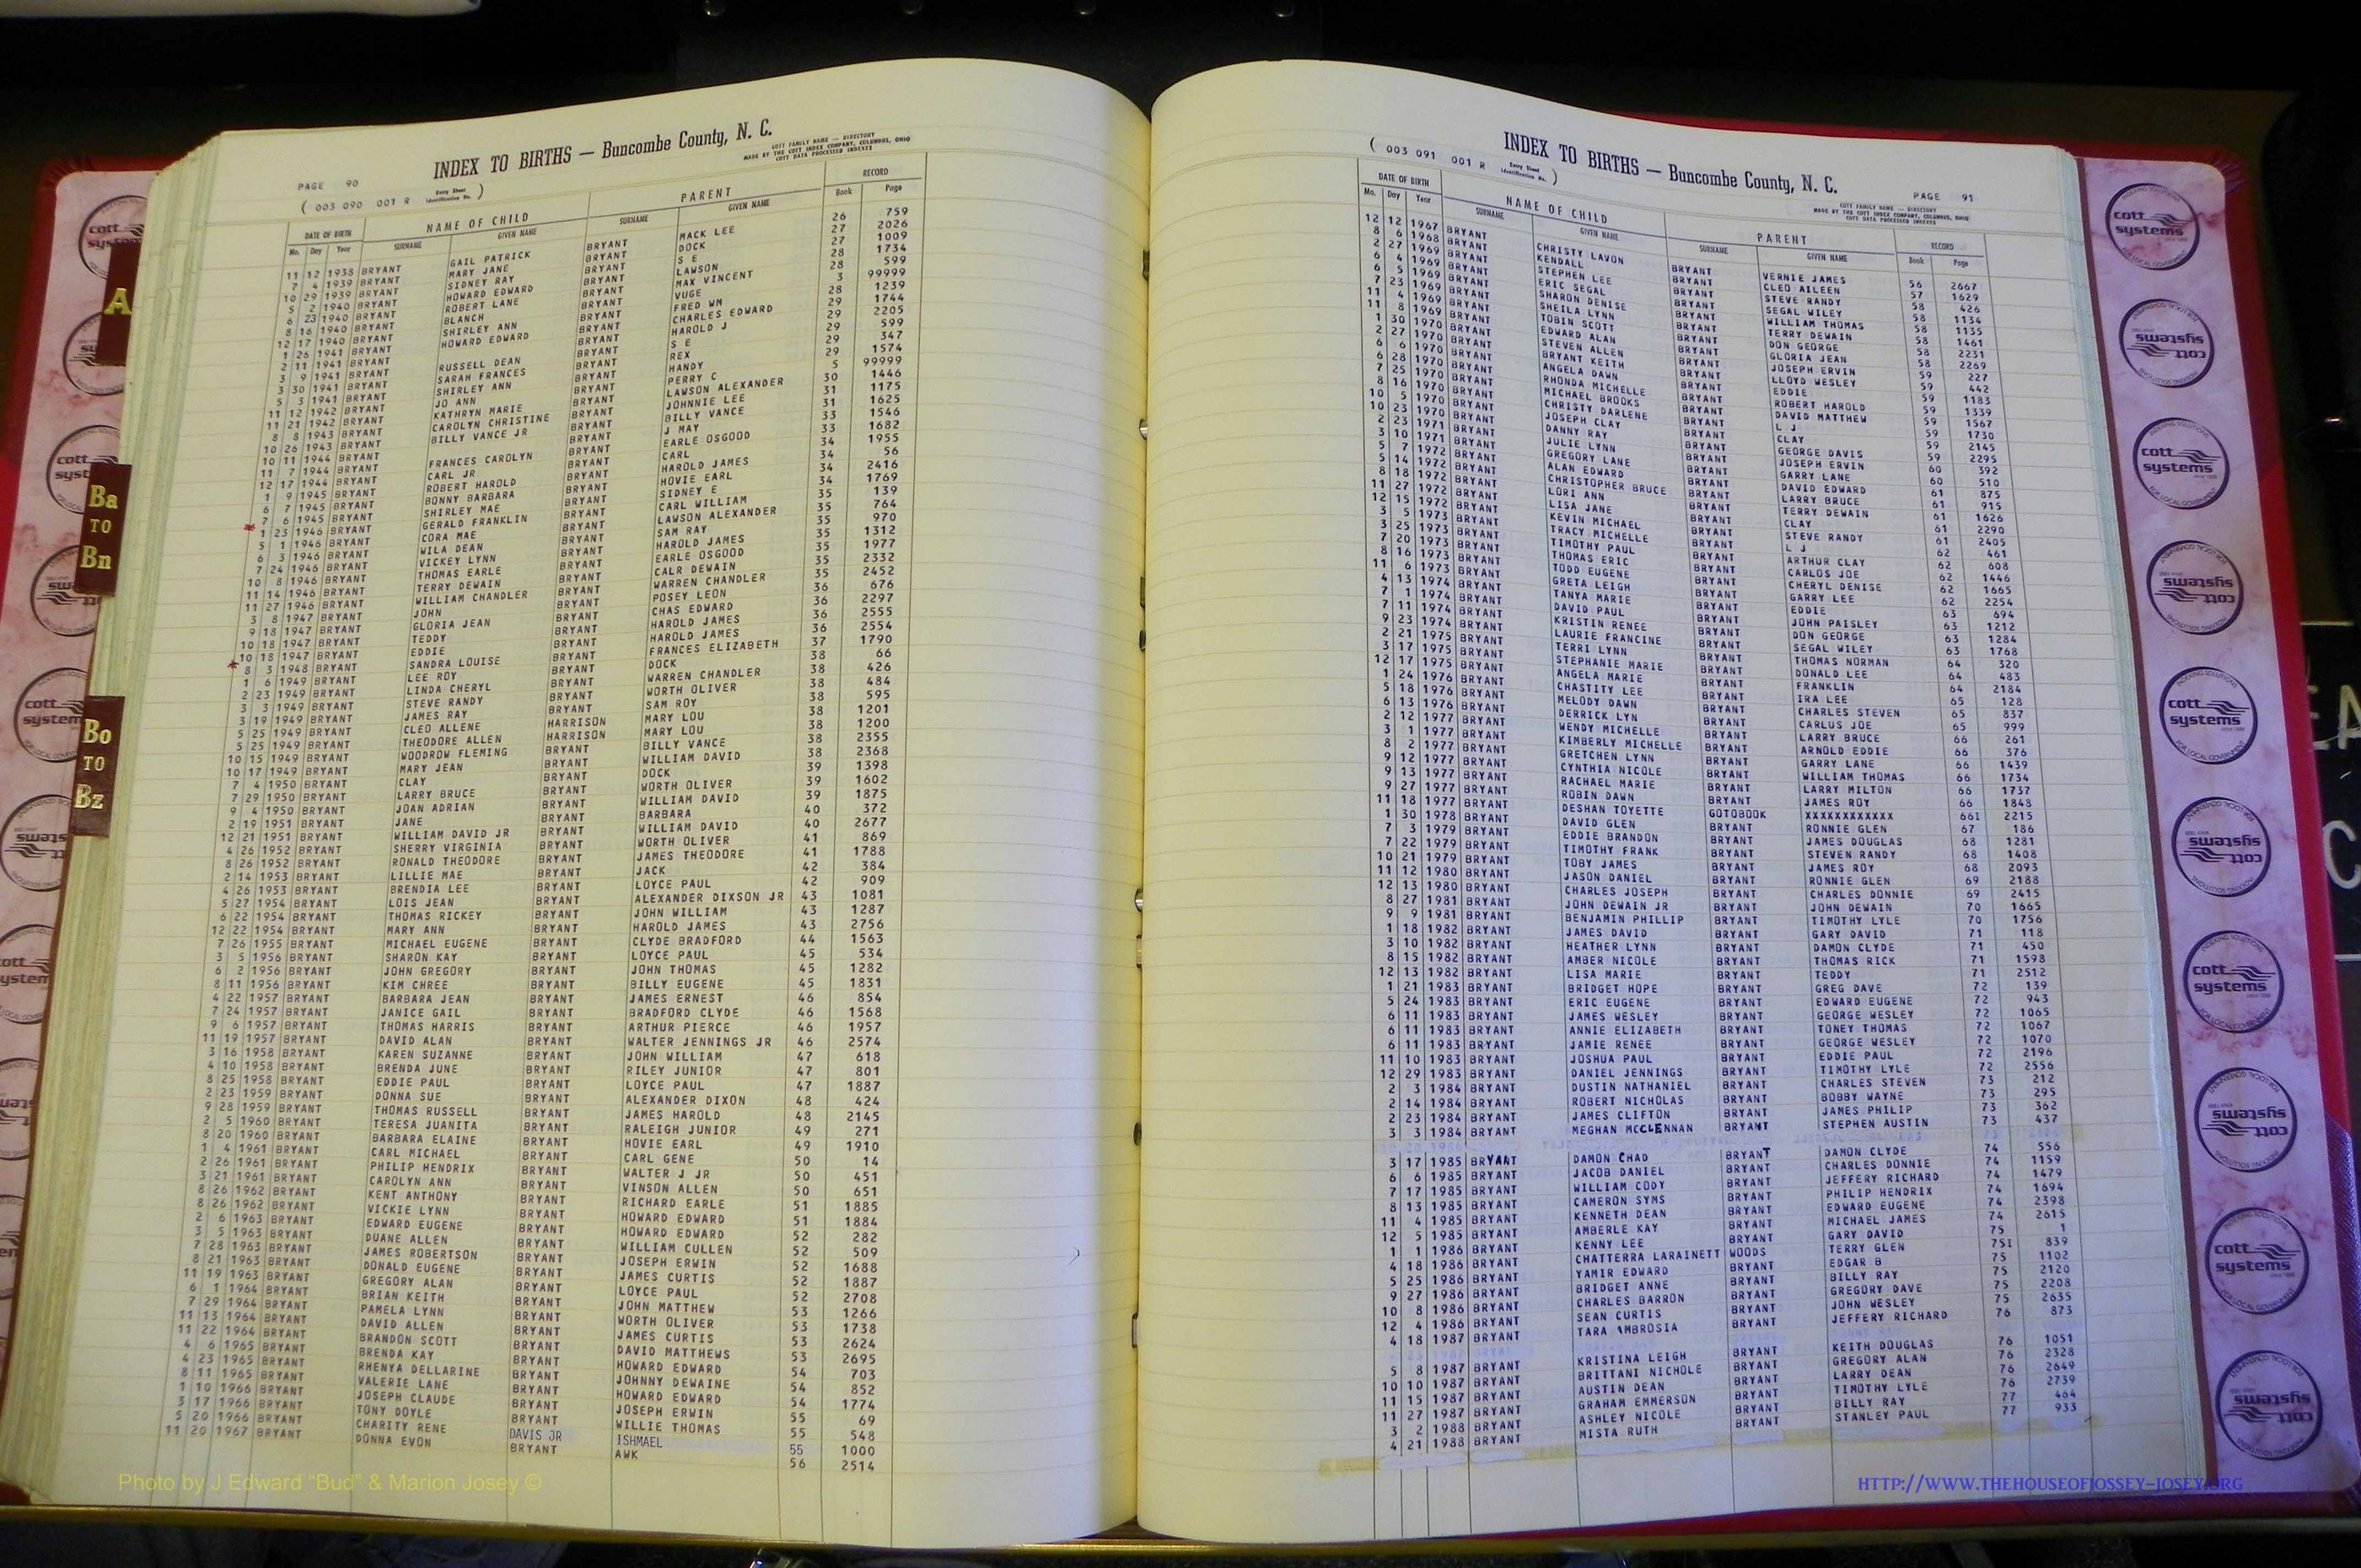 INDEX TO BIRTHS — Buncombe County, N. C.
COTT FAMILY NAME — DIRECTORY
MADE BY THE COTT INDEX COMPANY, COLUMBUS, OHIO
COTT DATA PROCESSED INDEXES
PAGE 90
( 003 090 001 R Entry Sheet Identification No. )
DATE OF BIRTH NAME OF CHILD PARENT RECORD
Mo. Day Year SURNAME GIVEN NAME SURNAME GIVEN NAME Book Page
11 12 1938 BRYANT GAIL PATRICK BRYANT MACK LEE 26 759
7 4 1939 BRYANT MARY JANE BRYANT DOCK 27 2026
10 29 1939 BRYANT SIDNEY RAY BRYANT S E 27 1009
5 2 1940 BRYANT HOWARD EDWARD BRYANT LAWSON 28 1734
6 23 1940 BRYANT ROBERT LANE BRYANT MAX VINCENT 28 599
8 16 1940 BRYANT BLANCH BRYANT VUGE 3 99999
12 17 1940 BRYANT SHIRLEY ANN BRYANT FRED WM 28 1239
1 26 1941 BRYANT HOWARD EDWARD BRYANT CHARLES EDWARD 29 1744
2 11 1941 BRYANT BRYANT HAROLD J 29 2205
3 9 1941 BRYANT RUSSELL DEAN BRYANT S E 29 599
3 30 1941 BRYANT SARAH FRANCES BRYANT REX 29 347
5 3 1941 BRYANT SHIRLEY ANN BRYANT HANDY 29 1574
11 12 1942 BRYANT JO ANN BRYANT PERRY C 5 99999
11 21 1942 BRYANT KATHRYN MARIE BRYANT LAWSON ALEXANDER 30 1446
8 8 1943 BRYANT CAROLYN CHRISTINE BRYANT JOHNNIE LEE 31 1175
10 26 1943 BRYANT BILLY VANCE JR BRYANT BILLY VANCE 31 1625
10 11 1944 BRYANT BRYANT J MAY 33 1546
11 7 1944 BRYANT FRANCES CAROLYN BRYANT EARLE OSGOOD 33 1682
12 17 1944 BRYANT CARL JR BRYANT CARL 34 1955
1 9 1945 BRYANT ROBERT HAROLD BRYANT HAROLD JAMES 34 56
6 7 1945 BRYANT BONNY BARBARA BRYANT HOVIE EARL 34 2416
7 6 1945 BRYANT SHIRLEY MAE BRYANT SIDNEY E 34 1769
1 23 1946 BRYANT GERALD FRANKLIN BRYANT CARL WILLIAM 35 139
5 1 1946 BRYANT CORA MAE BRYANT LAWSON ALEXANDER 35 764
6 3 1946 BRYANT WILA DEAN BRYANT SAM RAY 35 970
7 24 1946 BRYANT VICKEY LYNN BRYANT HAROLD JAMES 35 1312
10 8 1946 BRYANT THOMAS EARLE BRYANT EARLE OSGOOD 35 1977
11 14 1946 BRYANT TERRY DEWAIN BRYANT CALR DEWAIN 35 2332
11 27 1946 BRYANT WILLIAM CHANDLER BRYANT WARREN CHANDLER 35 2452
3 8 1947 BRYANT JOHN BRYANT POSEY LEON 36 676
9 18 1947 BRYANT GLORIA JEAN BRYANT CHAS EDWARD 36 2297
10 18 1947 BRYANT TEDDY BRYANT HAROLD JAMES 36 2555
10 18 1947 BRYANT EDDIE BRYANT HAROLD JAMES 36 2554
8 3 1948 BRYANT SANDRA LOUISE BRYANT FRANCES ELIZABETH 37 1790
1 6 1949 BRYANT LEE ROY BRYANT DOCK 38 66
2 23 1949 BRYANT LINDA CHERYL BRYANT WARREN CHANDLER 38 426
3 3 1949 BRYANT STEVE RANDY BRYANT WORTH OLIVER 38 484
3 19 1949 BRYANT JAMES RAY BRYANT SAM ROY 38 595
5 25 1949 BRYANT CLEO ALLENE HARRISON MARY LOU 38 1201
5 25 1949 BRYANT THEODORE ALLEN HARRISON MARY LOU 38 1200
10 15 1949 BRYANT WOODROW FLEMING BRYANT BILLY VANCE 38 2355
10 17 1949 BRYANT MARY JEAN BRYANT WILLIAM DAVID 38 2368
7 4 1950 BRYANT CLAY BRYANT DOCK 39 1398
7 29 1950 BRYANT LARRY BRUCE BRYANT WORTH OLIVER 39 1602
9 4 1950 BRYANT JOAN ADRIAN BRYANT WILLIAM DAVID 39 1875
2 19 1951 BRYANT JANE BRYANT BARBARA 40 372
12 21 1951 BRYANT WILLIAM DAVID JR BRYANT WILLIAM DAVID 40 2677
4 26 1952 BRYANT SHERRY VIRGINIA BRYANT WORTH OLIVER 41 869
8 26 1952 BRYANT RONALD THEODORE BRYANT JAMES THEODORE 41 1788
2 14 1953 BRYANT LILLIE MAE BRYANT JACK 42 384
4 26 1953 BRYANT BRENDIA LEE BRYANT LOYCE PAUL 42 909
5 27 1954 BRYANT LOIS JEAN BRYANT ALEXANDER DIXSON JR 43 1081
6 22 1954 BRYANT THOMAS RICKEY BRYANT JOHN WILLIAM 43 1287
12 22 1954 BRYANT MARY ANN BRYANT HAROLD JAMES 43 2756
7 26 1955 BRYANT MICHAEL EUGENE BRYANT CLYDE BRADFORD 44 1563
3 5 1956 BRYANT SHARON KAY BRYANT LOYCE PAUL 45 534
6 2 1956 BRYANT JOHN GREGORY BRYANT JOHN THOMAS 45 1282
8 11 1956 BRYANT KIM CHREE BRYANT BILLY EUGENE 45 1831
4 22 1957 BRYANT BARBARA JEAN BRYANT JAMES ERNEST 46 854
7 24 1957 BRYANT JANICE GAIL BRYANT BRADFORD CLYDE 46 1568
9 6 1957 BRYANT THOMAS HARRIS BRYANT ARTHUR PIERCE 46 1957
11 19 1957 BRYANT DAVID ALAN BRYANT WALTER JENNINGS JR 46 2574
3 16 1958 BRYANT KAREN SUZANNE BRYANT JOHN WILLIAM 47 618
4 10 1958 BRYANT BRENDA JUNE BRYANT RILEY JUNIOR 47 801
8 25 1958 BRYANT EDDIE PAUL BRYANT LOYCE PAUL 47 1887
2 23 1959 BRYANT DONNA SUE BRYANT ALEXANDER DIXON 48 424
9 28 1959 BRYANT THOMAS RUSSELL BRYANT JAMES HAROLD 48 2145
2 5 1960 BRYANT TERESA JUANITA BRYANT RALEIGH JUNIOR 49 271
8 20 1960 BRYANT BARBARA ELAINE BRYANT HOVIE EARL 49 1910
1 4 1961 BRYANT CARL MICHAEL BRYANT CARL GENE 50 14
2 26 1961 BRYANT PHILIP HENDRIX BRYANT WALTER J JR 50 451
3 21 1961 BRYANT CAROLYN ANN BRYANT VINSON ALLEN 50 651
8 26 1962 BRYANT KENT ANTHONY BRYANT RICHARD EARLE 51 1885
8 26 1962 BRYANT VICKIE LYNN BRYANT HOWARD EDWARD 51 1884
2 6 1963 BRYANT EDWARD EUGENE BRYANT HOWARD EDWARD 52 282
3 5 1963 BRYANT DUANE ALLEN BRYANT WILLIAM CULLEN 52 509
7 28 1963 BRYANT JAMES ROBERTSON BRYANT JOSEPH ERWIN 52 1688
8 21 1963 BRYANT DONALD EUGENE BRYANT JAMES CURTIS 52 1887
11 19 1963 BRYANT GREGORY ALAN BRYANT LOYCE PAUL 52 2708
6 1 1964 BRYANT BRIAN KEITH BRYANT JOHN MATTHEW 53 1266
7 29 1964 BRYANT PAMELA LYNN BRYANT WORTH OLIVER 53 1738
11 13 1964 BRYANT DAVID ALLEN BRYANT JAMES CURTIS 53 2624
11 22 1964 BRYANT BRANDON SCOTT BRYANT DAVID MATTHEWS 53 2695
4 6 1965 BRYANT BRENDA KAY BRYANT HOWARD EDWARD 54 703
4 23 1965 BRYANT RHENYA DELLARINE BRYANT JOHNNY DEWAINE 54 852
8 11 1965 BRYANT VALERIE LANE BRYANT HOWARD EDWARD 54 1774
1 10 1966 BRYANT JOSEPH CLAUDE BRYANT JOSEPH ERWIN 55 69
3 17 1966 BRYANT TONY DOYLE BRYANT WILLIE THOMAS 55 548
5 20 1966 BRYANT CHARITY RENE DAVIS JR ISHMAEL 55 1000
11 20 1967 BRYANT DONNA EVON BRYANT AWK 56 2514
INDEX TO BIRTHS — Buncombe County, N. C.
PAGE 91
( 003 091 001 R Entry Sheet Identification No. )
COTT FAMILY NAME — DIRECTORY
MADE BY THE COTT INDEX COMPANY, COLUMBUS, OHIO
COTT DATA PROCESSED INDEXES
DATE OF BIRTH NAME OF CHILD PARENT RECORD
Mo. Day Year SURNAME GIVEN NAME SURNAME GIVEN NAME Book Page
12 12 1967 BRYANT CHRISTY LAVON BRYANT VERNIE JAMES 56 2667
8 6 1968 BRYANT KENDALL BRYANT CLEO AILEEN 57 1629
2 27 1969 BRYANT STEPHEN LEE BRYANT STEVE RANDY 58 426
6 4 1969 BRYANT ERIC SEGAL BRYANT SEGAL WILEY 58 1134
6 5 1969 BRYANT SHARON DENISE BRYANT WILLIAM THOMAS 58 1135
7 23 1969 BRYANT SHEILA LYNN BRYANT TERRY DEWAIN 58 1461
11 4 1969 BRYANT TOBIN SCOTT BRYANT DON GEORGE 58 2231
11 8 1969 BRYANT EDWARD ALAN BRYANT GLORIA JEAN 58 2269
1 30 1970 BRYANT STEVEN ALLEN BRYANT JOSEPH ERVIN 59 227
2 27 1970 BRYANT BRYANT KEITH BRYANT LLOYD WESLEY 59 442
6 6 1970 BRYANT ANGELA DAWN BRYANT EDDIE 59 1183
6 28 1970 BRYANT RHONDA MICHELLE BRYANT ROBERT HAROLD 59 1339
7 25 1970 BRYANT MICHAEL BROOKS BRYANT DAVID MATTHEW 59 1567
8 16 1970 BRYANT CHRISTY DARLENE BRYANT L J 59 1730
10 5 1970 BRYANT JOSEPH CLAY BRYANT CLAY 59 2145
10 23 1970 BRYANT DANNY RAY BRYANT GEORGE DAVIS 59 2295
2 23 1971 BRYANT JULIE LYNN BRYANT JOSEPH ERVIN 60 392
3 10 1971 BRYANT GREGORY LANE BRYANT GARRY LANE 60 510
5 7 1972 BRYANT ALAN EDWARD BRYANT DAVID EDWARD 61 875
5 14 1972 BRYANT CHRISTOPHER BRUCE BRYANT LARRY BRUCE 61 915
8 18 1972 BRYANT LORI ANN BRYANT TERRY DEWAIN 61 1626
11 27 1972 BRYANT LISA JANE BRYANT CLAY 61 2290
12 15 1972 BRYANT KEVIN MICHAEL BRYANT STEVE RANDY 61 2405
3 5 1973 BRYANT TRACY MICHELLE BRYANT L J 62 461
3 25 1973 BRYANT TIMOTHY PAUL BRYANT ARTHUR CLAY 62 608
7 20 1973 BRYANT THOMAS ERIC BRYANT CARLOS JOE 62 1446
8 16 1973 BRYANT TODD EUGENE BRYANT CHERYL DENISE 62 1665
11 6 1973 BRYANT GRETA LEIGH BRYANT GARRY LEE 62 2254
4 13 1974 BRYANT TANYA MARIE BRYANT EDDIE 63 694
7 1 1974 BRYANT DAVID PAUL BRYANT JOHN PAISLEY 63 1212
7 11 1974 BRYANT KRISTIN RENEE BRYANT DON GEORGE 63 1284
9 23 1974 BRYANT LAURIE FRANCINE BRYANT SEGAL WILEY 63 1768
2 21 1975 BRYANT TERRI LYNN BRYANT THOMAS NORMAN 64 320
3 17 1975 BRYANT STEPHANIE MARIE BRYANT DONALD LEE 64 483
12 17 1975 BRYANT ANGELA MARIE BRYANT FRANKLIN 64 2184
1 24 1976 BRYANT CHASTITY LEE BRYANT IRA LEE 65 128
5 18 1976 BRYANT MELODY DAWN BRYANT CHARLES STEVEN 65 837
6 13 1976 BRYANT DERRICK LYN BRYANT CARLUS JOE 65 999
2 12 1977 BRYANT WENDY MICHELLE BRYANT LARRY BRUCE 66 261
3 1 1977 BRYANT KIMBERLY MICHELLE BRYANT ARNOLD EDDIE 66 376
8 2 1977 BRYANT GRETCHEN LYNN BRYANT GARRY LANE 66 1439
9 12 1977 BRYANT CYNTHIA NICOLE BRYANT WILLIAM THOMAS 66 1734
9 13 1977 BRYANT RACHAEL MARIE BRYANT LARRY MILTON 66 1737
9 27 1977 BRYANT ROBIN DAWN BRYANT JAMES ROY 66 1848
11 18 1977 BRYANT DESHAN TOYETTE GOTOBOOK XXXXXXXXXXXX 661 2215
1 30 1978 BRYANT DAVID GLEN BRYANT RONNIE GLEN 67 186
7 3 1979 BRYANT EDDIE BRANDON BRYANT JAMES DOUGLAS 68 1281
7 22 1979 BRYANT TIMOTHY FRANK BRYANT STEVEN RANDY 68 1408
10 21 1979 BRYANT TOBY JAMES BRYANT JAMES ROY 68 2093
11 12 1980 BRYANT JASON DANIEL BRYANT RONNIE GLEN 69 2188
12 13 1980 BRYANT CHARLES JOSEPH BRYANT CHARLES DONNIE 69 2415
8 27 1981 BRYANT JOHN DEWAIN JR BRYANT JOHN DEWAIN 70 1665
9 9 1981 BRYANT BENJAMIN PHILLIP BRYANT TIMOTHY LYLE 70 1756
1 18 1982 BRYANT JAMES DAVID BRYANT GARY DAVID 71 118
3 10 1982 BRYANT HEATHER LYNN BRYANT DAMON CLYDE 71 450
8 15 1982 BRYANT AMBER NICOLE BRYANT THOMAS RICK 71 1598
12 13 1982 BRYANT LISA MARIE BRYANT TEDDY 71 2512
1 21 1983 BRYANT BRIDGET HOPE BRYANT GREG DAVE 72 139
5 24 1983 BRYANT ERIC EUGENE BRYANT EDWARD EUGENE 72 943
6 11 1983 BRYANT JAMES WESLEY BRYANT GEORGE WESLEY 72 1065
6 11 1983 BRYANT ANNIE ELIZABETH BRYANT TONEY THOMAS 72 1067
6 11 1983 BRYANT JAMIE RENEE BRYANT GEORGE WESLEY 72 1070
11 10 1983 BRYANT JOSHUA PAUL BRYANT EDDIE PAUL 72 2196
12 29 1983 BRYANT DANIEL JENNINGS BRYANT TIMOTHY LYLE 72 2556
2 3 1984 BRYANT DUSTIN NATHANIEL BRYANT CHARLES STEVEN 73 212
2 14 1984 BRYANT ROBERT NICHOLAS BRYANT BOBBY WAYNE 73 295
2 23 1984 BRYANT JAMES CLIFTON BRYANT JAMES PHILIP 73 362
3 3 1984 BRYANT MEGHAN MCCLENNAN BRYANT STEPHEN AUSTIN 73 437
3 17 1985 BRYANT DAMON CHAD BRYANT DAMON CLYDE 74 556
6 6 1985 BRYANT JACOB DANIEL BRYANT CHARLES DONNIE 74 1159
7 17 1985 BRYANT WILLIAM CODY BRYANT JEFFERY RICHARD 74 1479
8 13 1985 BRYANT CAMERON SYMS BRYANT PHILIP HENDRIX 74 1694
11 4 1985 BRYANT KENNETH DEAN BRYANT EDWARD EUGENE 74 2398
12 5 1985 BRYANT AMBERLE KAY BRYANT MICHAEL JAMES 74 2615
1 1 1986 BRYANT KENNY LEE BRYANT GARY DAVID 75 1
4 18 1986 BRYANT CHATTERRA LARAINETT WOODS TERRY GLEN 751 839
5 25 1986 BRYANT YAMIR EDWARD BRYANT EDGAR B 75 1102
9 27 1986 BRYANT BRIDGET ANNE BRYANT BILLY RAY 75 2120
10 8 1986 BRYANT CHARLES BARRON BRYANT GREGORY DAVE 75 2208
12 4 1986 BRYANT SEAN CURTIS BRYANT JOHN WESLEY 75 2635
4 18 1987 BRYANT TARA AMBROSIA BRYANT JEFFERY RICHARD 76 873
5 8 1987 BRYANT KRISTINA LEIGH BRYANT KEITH DOUGLAS 76 1051
10 10 1987 BRYANT BRITTANI NICHOLE BRYANT GREGORY ALAN 76 2328
11 15 1987 BRYANT AUSTIN DEAN BRYANT LARRY DEAN 76 2649
11 27 1987 BRYANT GRAHAM EMMERSON BRYANT TIMOTHY LYLE 76 2739
3 2 1988 BRYANT ASHLEY NICOLE BRYANT BILLY RAY 77 464
4 21 1988 BRYANT MISTA RUTH BRYANT STANLEY PAUL 77 933
A
Ba
TO
Bn
Bo
TO
Bz
cott
systems
Photo by J Edward "Bud" & Marion Josey ©
HTTP://WWW.THEHOUSEOFJOSSEY-JOSEY.ORG